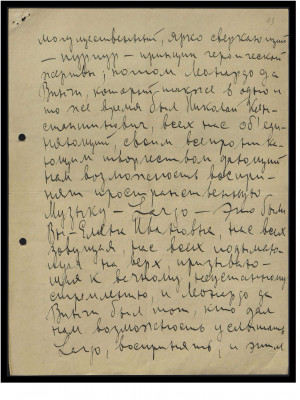 13
могущественный, ярко сверкающий
– пурпур – принцип героической
жертвы; потом Леонардо да
Винчи, который также в одно и
то же время был Николай Кон-
стантинович, всех нас объеди-
няющий, своим всепроника-
ющим творчеством дающий
нам возможность воспри-
нять пространственную
Музыку – Largo – Это были
Вы – Елена Ивановна, нас всех
зовущая, нас всех подымаю-
щая на верх, призываю-
щая к вечному неустанному
стремлению, и Леонардо да
Винчи был тот, кто дал
нам возможность услышать
Largo, воспринять, и этим